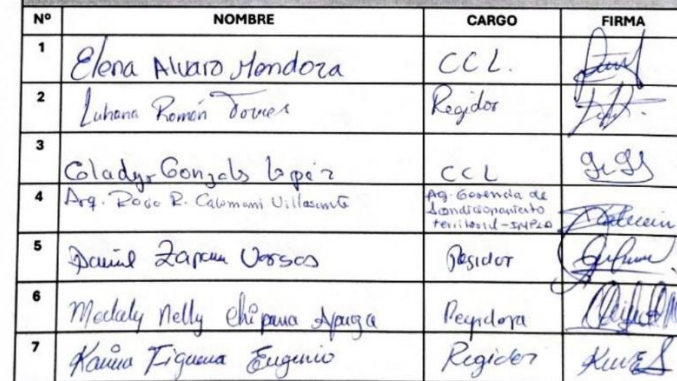 Nº NOMBRE CARGO FIRMA
1 Elena Alvaro Mendoza CCL.
2 Luhana Román Torres Regidor
3 Gladys Gonzales López CCL
4 Arq. Rocio R. Calomani Villasante Arq. Gerencia de
Acondicionamiento
territorial-IMPLA
5 Daniel Zapana Vargas Regidor
6 Madaly Nelly Chipana Apaza Regidora
7 Karina Figueroa Eugenio Regidor